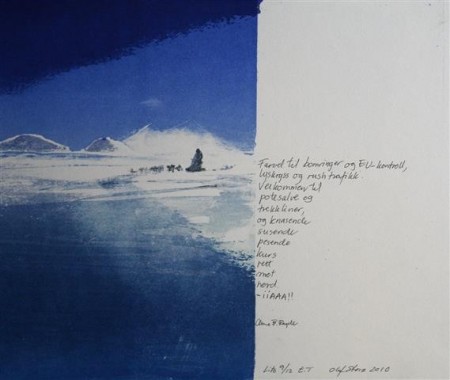 Farvel til bomringer og EU-kontroll,
lyskryss og rushtrafikk
Velkommen til
potesalve og
trekkliner,
og knasende
susende
pesende
kurs
rett
mot
nord
- iiAAA!!
Litho 9/12 E.T Olaf Storø 2010